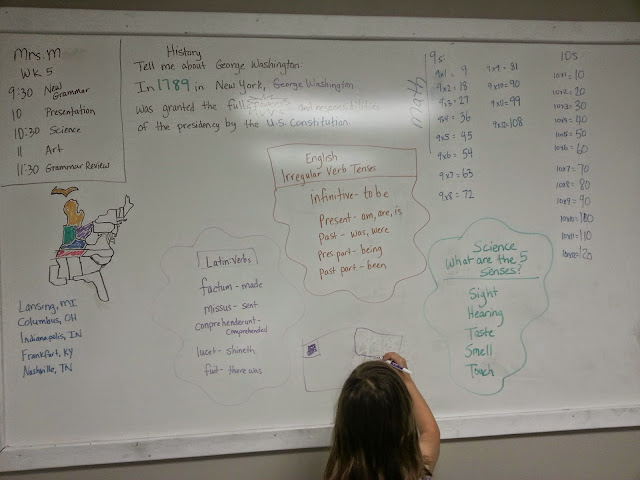 Mrs. M
WK 5
9:30 New Grammar
10 Presentation
10:30 Science
11 Art
11:30 Grammar Review
History
Tell me about George Washington.
In 1789 in New York, George Washington
was granted the full and responsibilities
of the presidency by the U.S. Constitution.
Math
9s:
9x1 = 9
9x2 = 18
9x3 = 27
9x4 = 36
9x5 = 45
9x6 = 54
9x7 = 63
9x8 = 72
9x9 = 81
9x10 = 90
9x11 = 99
9x12 = 108
10s:
10x1 = 10
10x2 = 20
10x3 = 30
10x4 = 40
10x5 = 50
10x6 = 60
10x7 = 70
10x8 = 80
10x9 = 90
10x10 = 100
10x11 = 110
10x12 = 120
English
Irregular Verb Tenses
infinitive - to be
Present - am, are, is
Past - was, were
Pres. part - being
past part - been
Latin-Verbs
factum - made
missus - sent
comprehenderant -
comprehended
lucet - shineth
fuit - there was
Science
What are the 5
senses?
Sight
Hearing
Taste
Smell
Touch
Lansing, MI
Columbus, OH
Indianapolis, IN
Frankfort, KY
Nashville, TN